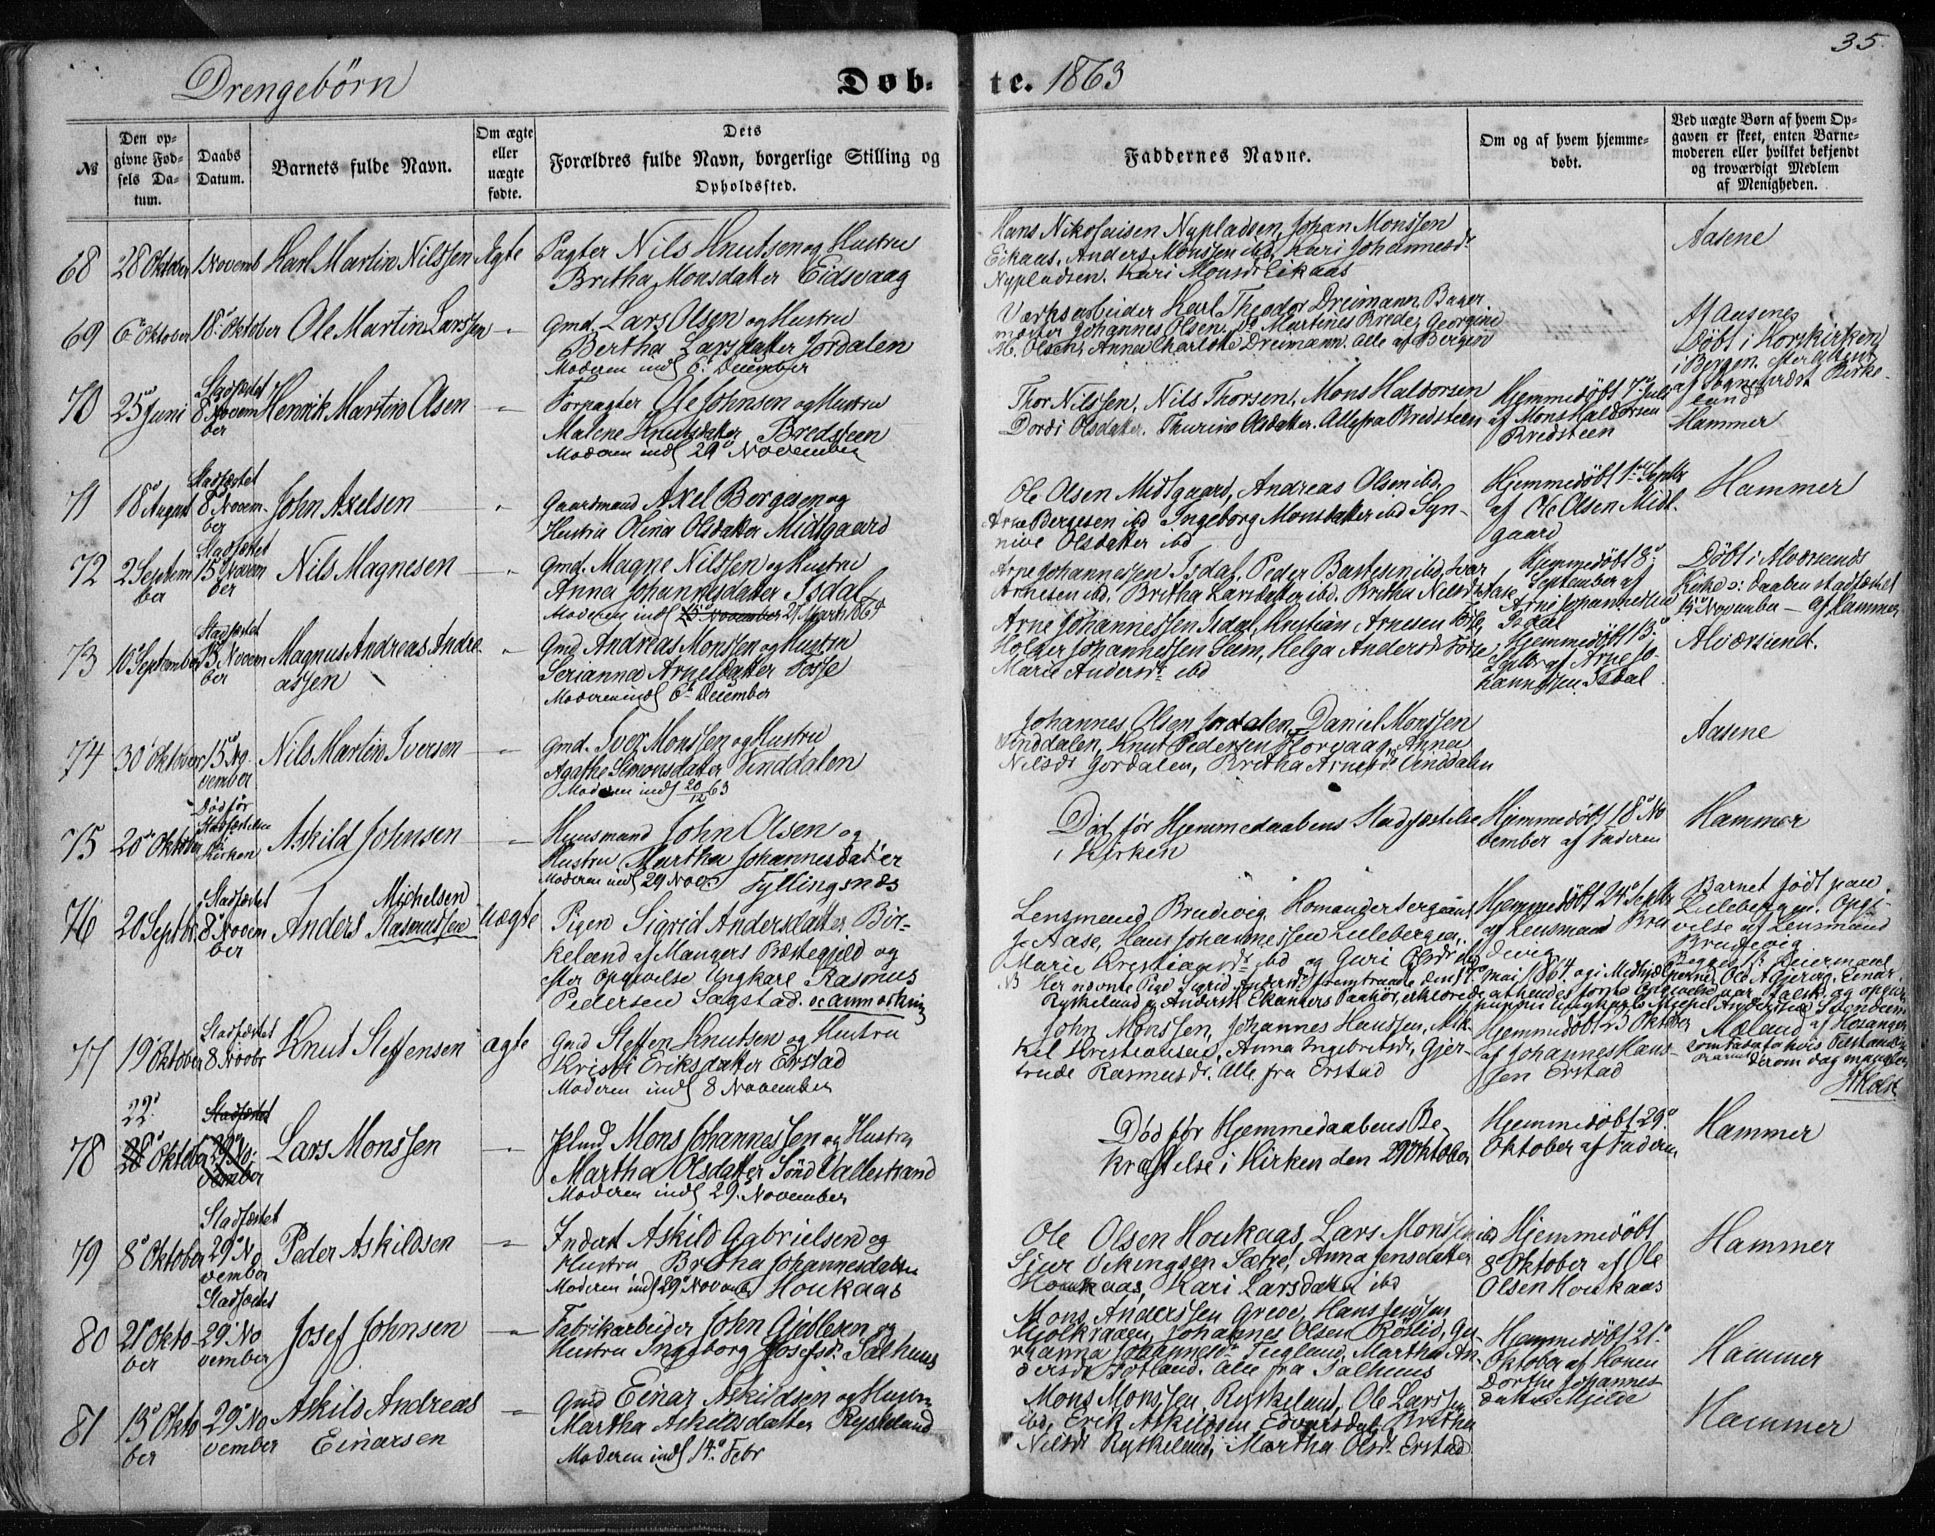 35.
Drengebørn
Døb-
te. 1863
No
Den op-
givne Fød-
sels Da-
tum.
Daabs
Datum.
Barnets fulde Navn.
Om ægte
eller
uægte
fødte.
Dets
Forældres fulde Navn, borgerlige Stilling og
Opholdssted.
Faddernes Navne.
Om og af hvem hjemme-
døbt.
Ved uægte Børn af hvem Op-
gaven er skeet, enten Barne-
moderen eller hvilket bekjendt
og troværdigt Medlem
af Menigheden.
68 28 Oktober 1 Novemb Karl Martin Nilssen Ægte
Pagter Nils Knutsen og Hustru
Britha Monsdatter Eidsvaag
Hans Nikolaisen Nypladsen, Johan Monssen
Eikaas, Anders Monssen ibd, Kari Johannesdr
Nypladsen. Kari Monsdr Eikaas
Aasene
69 6 Oktober 18 Oktober Ole Martin Larssen "
Gmd. Lars Olsen og Hustru
Bertha Larsdatter Jordalen
Moderen indl 6. December
Værksarbeider Karl Theodor Dreimann, Bager
mester Johannes Olsen. Martines Brede, Georgine
M. Olsen, Anna Charlotte Dreimann. Alle af Bergen
Af Aasenes
Døbt i Korskirken
i Bergen efter Attest
af Sogneprest Birke-
land
70 25 Juni Stadfæstet
8 Novem
ber
Henrik Martin Olsen "
Forpagter Ole Johnsen og Hustru
Malene Knutsdatter Bredsteen
Moderen indl 29 November
Thor Nilssen, Nils Thorsen, Mons Haldorsen
Dordi Olsdatter. Thurine Olsdatter. Alle fra Bredsteen
Hjemmedøbt 7 Juli
af Mons Haldorsen
Bredsteen
Hammer
71 18 August Stadfæstet
8 Novem-
ber
John Axelsen "
Gaardmand Axel Børgesen og
Hustru Olina Olsdatter Midtgaard
Ole Olsen Midtgaard, Andreas Olsen ibd,
Arne Børgesen ibd Ingeborg Monsdatter ibd Syn-
nive Olsdatter ibd
Hjemmedøbt 1 Septbr
af Ole Olsen Midt-
gaard
Hammer
72 2 Septem
ber
Stadfæstet
15 Novem
ber
Nils Magnesen "
Gmd. Magne Nilssen og Hustru
Anna Johannesdatter Isdal
Moderen indl 15 November 27 March 1864
Arne Johannessen Isdal, Peder Bastesen ibd, Ivar
Arnesen ibd. Britha Larsdatter ibd. Britha Nilsdr Aase
Hjemmedøbt 8
September af
Arne Johannessen
Isdal
Døbt i Alværsunds
Kirke o: Daaben stadfæstet
15 November - Af Hammer
73 10 September Stadfæstet
15 Novem
ber
Magnus Andreas Andre
assen
"
Gmd Andreas Monssen og Hustru
Serianna Arnesdatter Fosse
Moderen indl 6 December
Arne Johannessen Isdal, Kristian Arnesen Fosse,
Holger Johannessen Seem, Helga Andersdr Fosse
Marie Andersdr ibd
Hjemmedøbt 13
Septbr af Arne Jo-
hannessen Isdal
Alværsund.
74 30 Oktober 15 No
vember
Nils Martin Iversen "
Gmd. Iver Monssen og Hustru
Agathe Simonsdatter Vinddalen
Moderen indl 20/12 63
Johannes Olsen Jordalen, Daniel Monssen
Vinddalen, Knut Pedersen Florvaag, Anna
Nilsdr Jordalen, Britha Arnesdr Vinddalen
Aasene
75 20 Oktober Død før
Stadfæstelsen
i
Kirken
Askild Johnsen "
Huusmand John Olsen og
Hustru Martha Johannesdatter
Moderen indl 29 Nov. Fyllingsnæs
Død før Hjemmedaabens Stadfæstelse
i Kirken
Hjemmedøbt 18 No
vember af Faderen
Hammer
76 20 Septbr. Stadfæstet
8 Novem
ber
Michelsen
Anders Rasmussen Uægte
Pigen Sigrid Andersdatter Bir-
keland af Mangers Præstegjeld og
efter Opgivelse Ungkarl Rasmus
Pedersen Sagstad.
Lensmand Brudevig,
Aase, Hans Johannessen Lilleberge,
Marie Kristiansdr ibd og Guri Olsdr ibd
Hjemmedøbt 24 Septbr
af Lensmand Bru
devig
Barnet født paa
Lilleberge. Opgi-
velse af Lensmand
Brudevig
77 19 Oktober Stadfæstet
8 Novbr
Knut Steffensen ægte
Gmd Steffen Knutsen og Hustru
Kristi Eriksdatter Erstad
Moderen indl 8 November
John Monssen, Johannes Hanssen, Mik-
kel Kristiansen, Anna Ingebretsdr, Gjer-
trude Rasmusdr. Alle fra Erstad
Hjemmedøbt 23 Oktober
af Johannes Hans-
sen Erstad
78 22
28 Oktober Stadfæstet
29 No-
vember
Lars Monssen "
Mons Johannessen og Hustru
Martha Olsdatter Sønd Vallestrand
Moderen indl 29 November
Død før Hjemmedaabens Be-
kræftelse i Kirken den 29 Oktober
Hjemmedøbt 29
Oktober af Faderen
Hammer
79 8 Oktober Stadfæstet
29 No
vember
Peder Askildsen "
Inderst Askild Gabrielsen og
Hustru Britha Johannesdatter
Moderen indl 29 Novemb Houkaas
Ole Olsen Houkaas, Lars Monssen ibd
Sjur Vikingsen Sætre, Anna Jensdatter
Houkaas, Kari Larsdatter ibd
Hjemmedøbt
8 Oktober af Ole
Olsen Houkaas
Hammer
80 21 Okto-
ber
Stadfæstet
29 No
vember
Josef Johnsen "
Fabrikarbeider John Gjeblesen og
Hustru Ingeborg Josefsdr Salhuus
Mons Anderssen Greve, Hans Jenssen
Mjølkraaen, Johannes Olsen Røslid, Gu-
rianna Johannesdr Teigland, Martha An-
dersdr Totland. Alle fra Salhuus
Hjemmedøbt 21
Oktober af Konen
Dorthe Johannes
datter Mjelde
Hammer
81 13 Okto-
ber
29 No
vember
Askild Andreas
Einarsen
"
Gmd Einar Askildsen og Hustru
Martha Askildsdatter Rydkeland
Moderen indl 14 Febr
Mons Monssen Rydkeland, Ole Larssen
ibd, Erik Askildsen Edvarsdal, Britha
Nilsdr Rydkeland, Martha Olsdr Erstad
Hammer